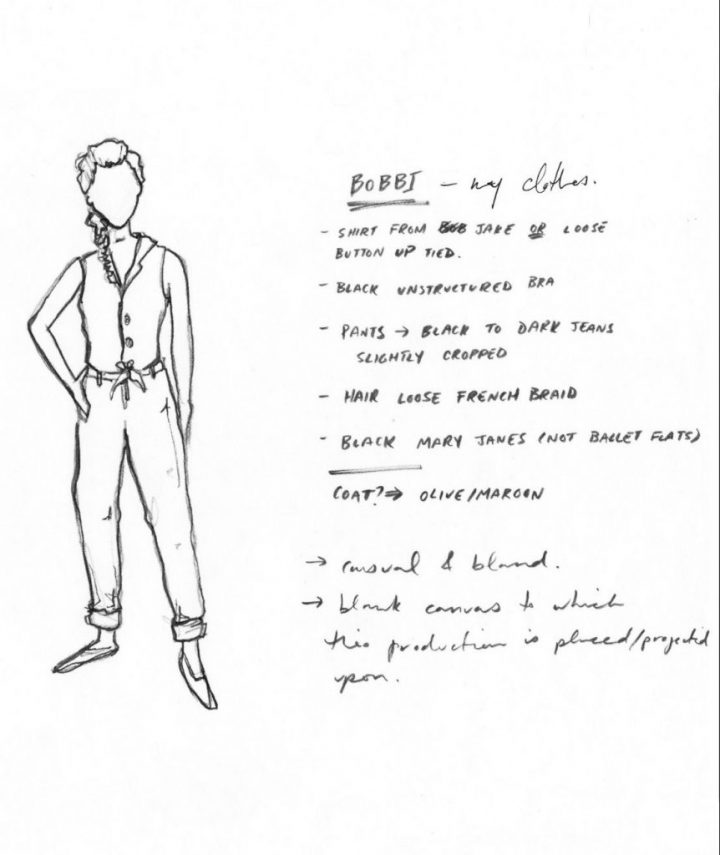 BOBBI - my clothes.
- SHIRT FROM JAKE OR LOOSE
BUTTON UP TIED.
- BLACK UNSTRUCTURED BRA
- PANTS → BLACK TO DARK JEANS
SLIGHTLY CROPPED
- HAIR LOOSE FRENCH BRAID
- BLACK MARY JANES (NOT BALLET FLATS)
COAT? → OLIVE/MAROON
→ casual & bland.
→ blank canvas to which
this production is placed/projected
upon.